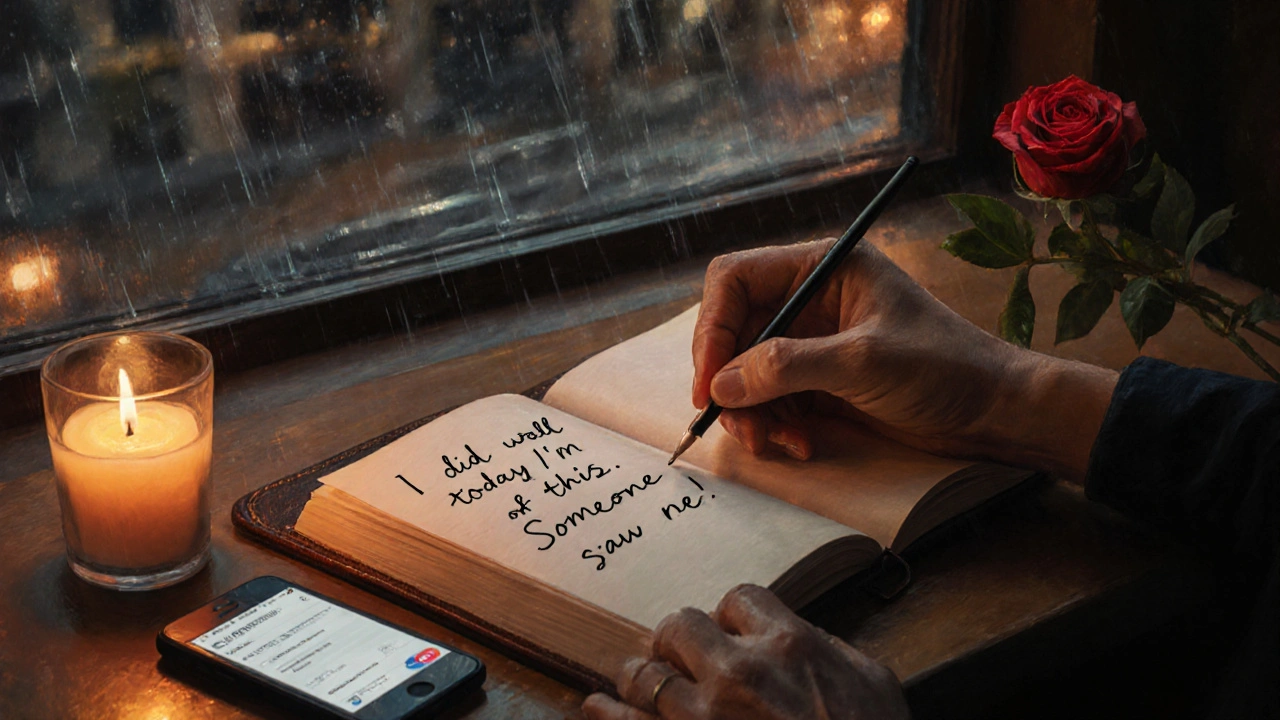 I did wall
today I'm
of this.
Someone
saw ne!